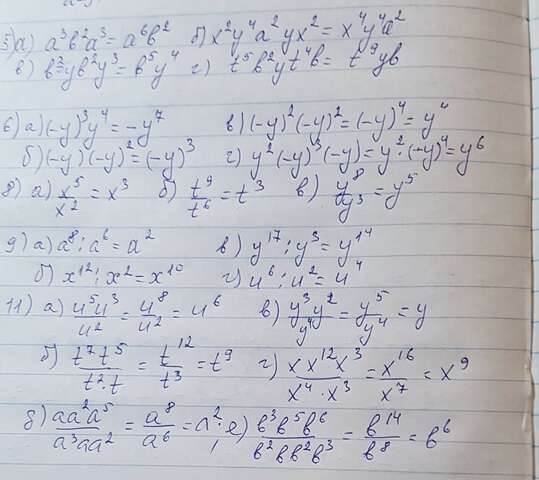 5) а) a³b²a³ = a⁶b² б) x²y⁴a²yx² = x⁴y⁴a²
в) b³yb²y³ = b⁵y⁴ г) t⁵b²yt⁴b = t⁹yb
6) а) (-y)³y⁴ = -y⁷ в) (-y)²(-y)² = (-y)⁴ = y⁴
б) (-y)(-y)² = (-y)³ г) y²(-y)³(-y) = y²·(-y)⁴ = y⁶
8) а) x⁵/x² = x³ б) t⁹/t⁶ = t³ в) y⁸/y³ = y⁵
9) а) a⁸:a⁶ = a² в) y¹⁷:y³ = y¹⁴
б) x¹²:x² = x¹⁰ г) u⁶:u² = u⁴
11) а) u⁵u³/u² = u⁸/u² = u⁶ в) y³y²/y⁴ = y⁵/y⁴ = y
б) t⁷t⁵/t²·t = t¹²/t³ = t⁹ г) xx¹²x³/x⁴·x³ = x¹⁶/x⁷ = x⁹
д) aa²a⁵/a³aa² = a⁸/a⁶ = a²; е) b³b⁵b⁶/b²bb²b³ = b¹⁴/b⁸ = b⁶